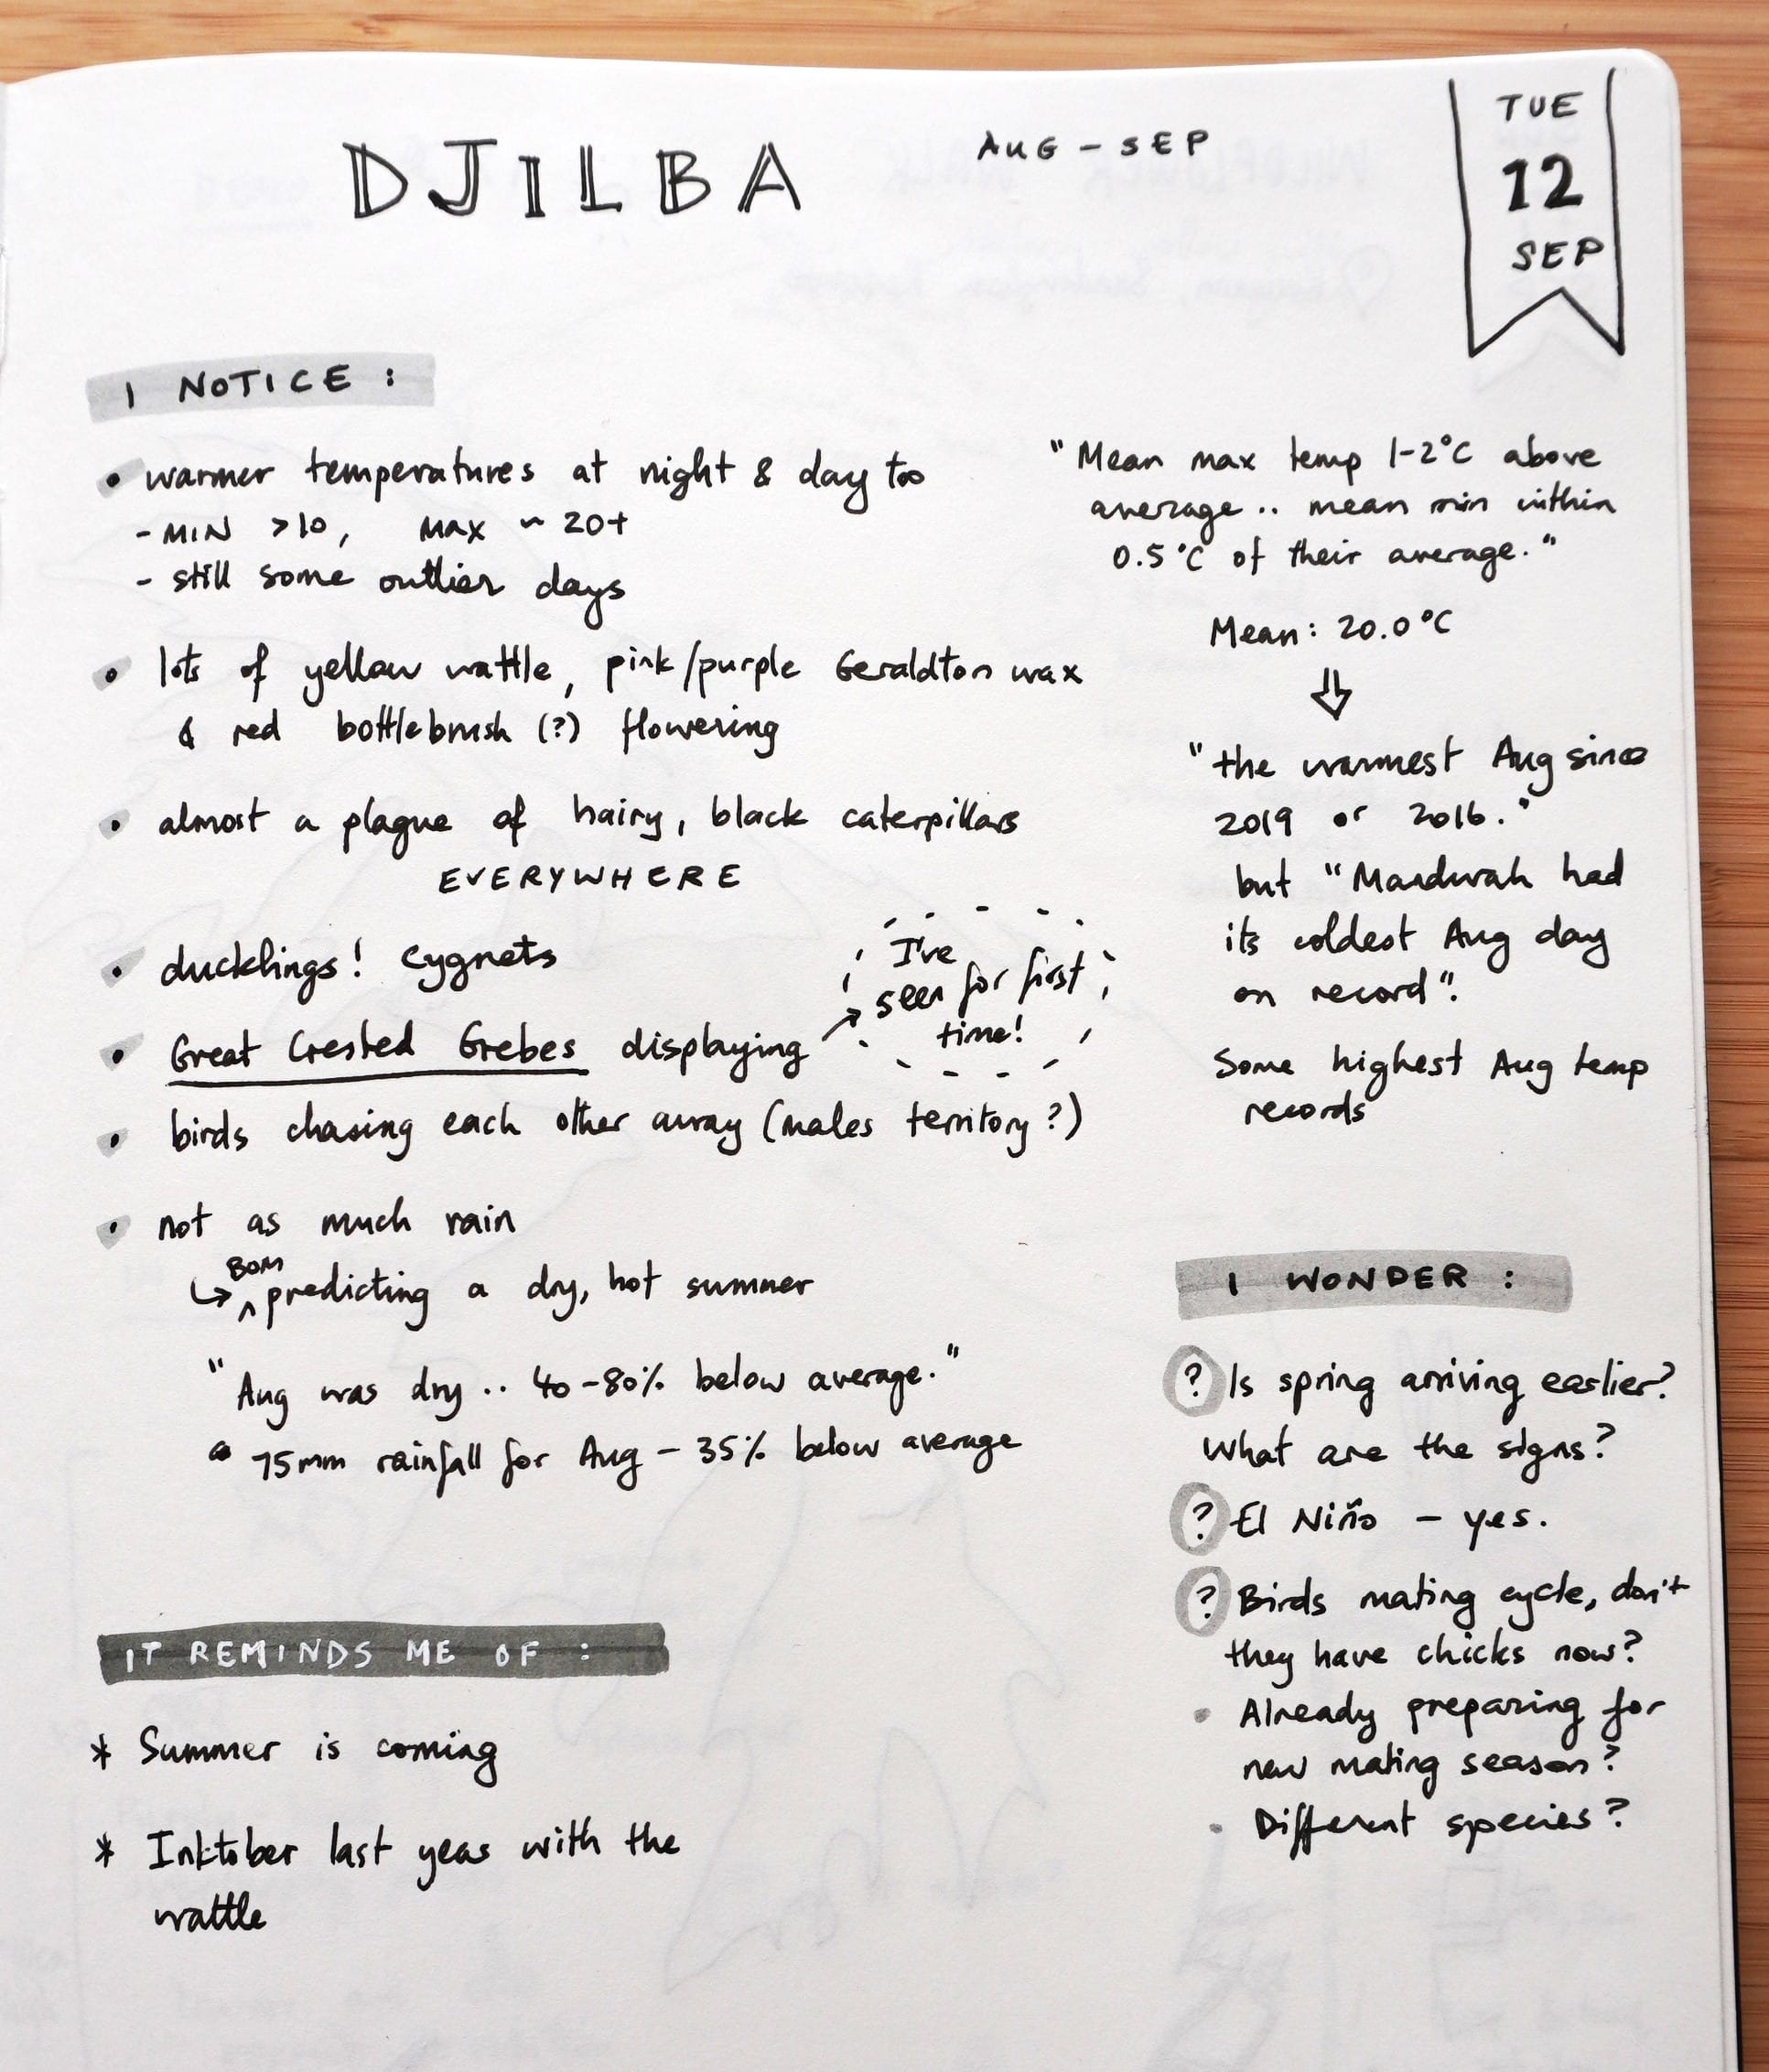 DJILBA
AUG - SEP
TUE
12
SEP
I NOTICE :
• warmer temperatures at night & day too
- MIN >10, MAX ~ 20+
- still some outlier days
• lots of yellow wattle, pink/purple Geraldton wax
& red bottlebrush (?) flowering
• almost a plague of hairy, black caterpillars
EVERYWHERE
• ducklings! cygnets
• Great Crested Grebes displaying →
I've
seen for first
time!
• birds chasing each other away (males territory?)
• not as much rain
BOM
↳ ^ predicting a dry, hot summer
"Aug was dry .. 40-80% below average."
• 75mm rainfall for Aug - 35% below average
"Mean max temp 1-2°C above
average .. mean min within
0.5°C of their average."
Mean: 20.0°C
⇓
"the warmest Aug since
2019 or 2016."
but "Mandurah had
its coldest Aug day
on record".
Some highest Aug temp
records
I WONDER :
? Is spring arriving earlier?
What are the signs?
? El Niño - yes.
? Birds mating cycle, don't
they have chicks now?
• Already preparing for
new mating season?
• Different species?
IT REMINDS ME OF :
* Summer is coming
* Inktober last year with the
wattle